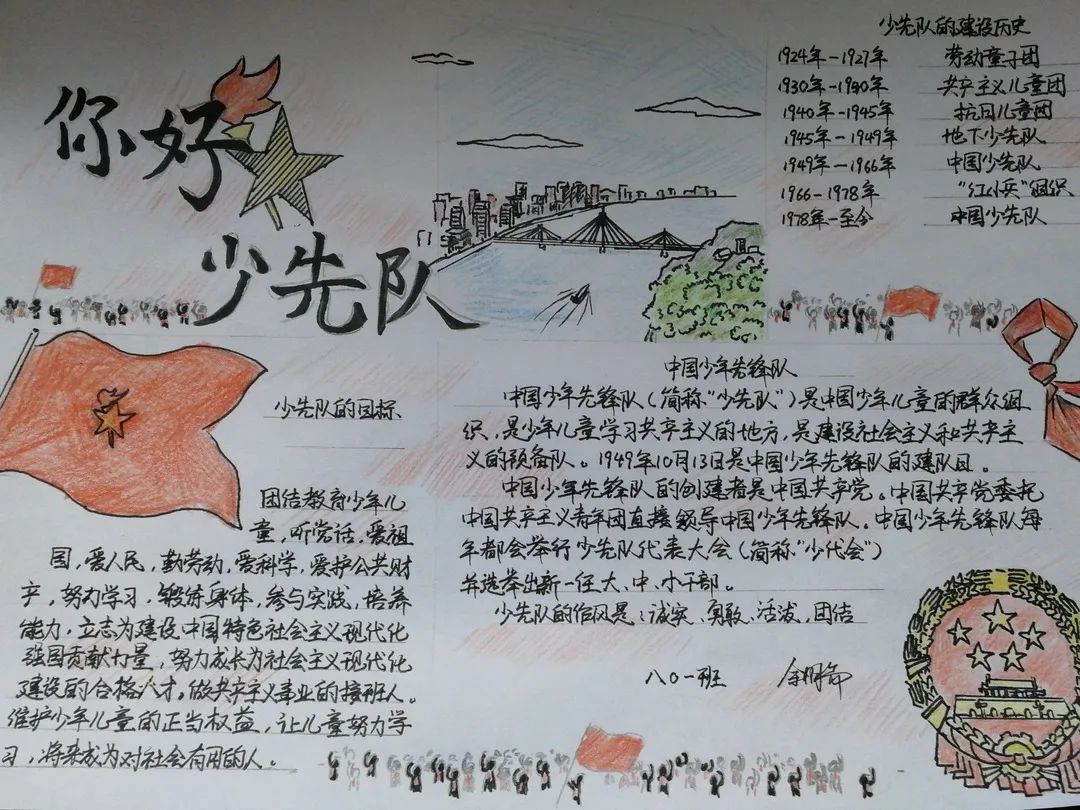 你好
少先队
少先队的建设历史
1924年-1927年 劳动童子团
1930年-1930年 共产主义儿童团
1940年-1945年 抗日儿童团
1945年-1949年 地下少先队
1949年-1966年 中国少先队
1966-1978年 “红小兵”组织
1978年-至今 中国少先队
少先队的目标
团结教育少年儿
童,听党话,爱祖
国,爱人民,勤劳动,爱科学,爱护公共财
产,努力学习,锻炼身体,参与实践,培养
能力,立志为建设中国特色社会主义现代化
强国贡献力量,努力成长为社会主义现代化
建设的合格人才。做共产主义事业的接班人。
维护少年儿童的正当权益,让儿童努力学
习,将来成为对社会有用的人。
中国少年先锋队
中国少年先锋队(简称“少先队”)是中国少年儿童的群众组
织,是少年儿童学习共产主义的地方,是建设社会主义和共产主
义的预备队。1949年10月13日是中国少年先锋队的建队日。
中国少年先锋队的创建者是中国共产党。中国共产党委托
中国共产主义青年团直接领导中国少年先锋队。中国少年先锋队每
年都会举行少先队代表大会(简称“少代会”)
并选举出新一任大、中、小干部。
少先队的作风是:诚实、勇敢、活泼、团结
八〇一班